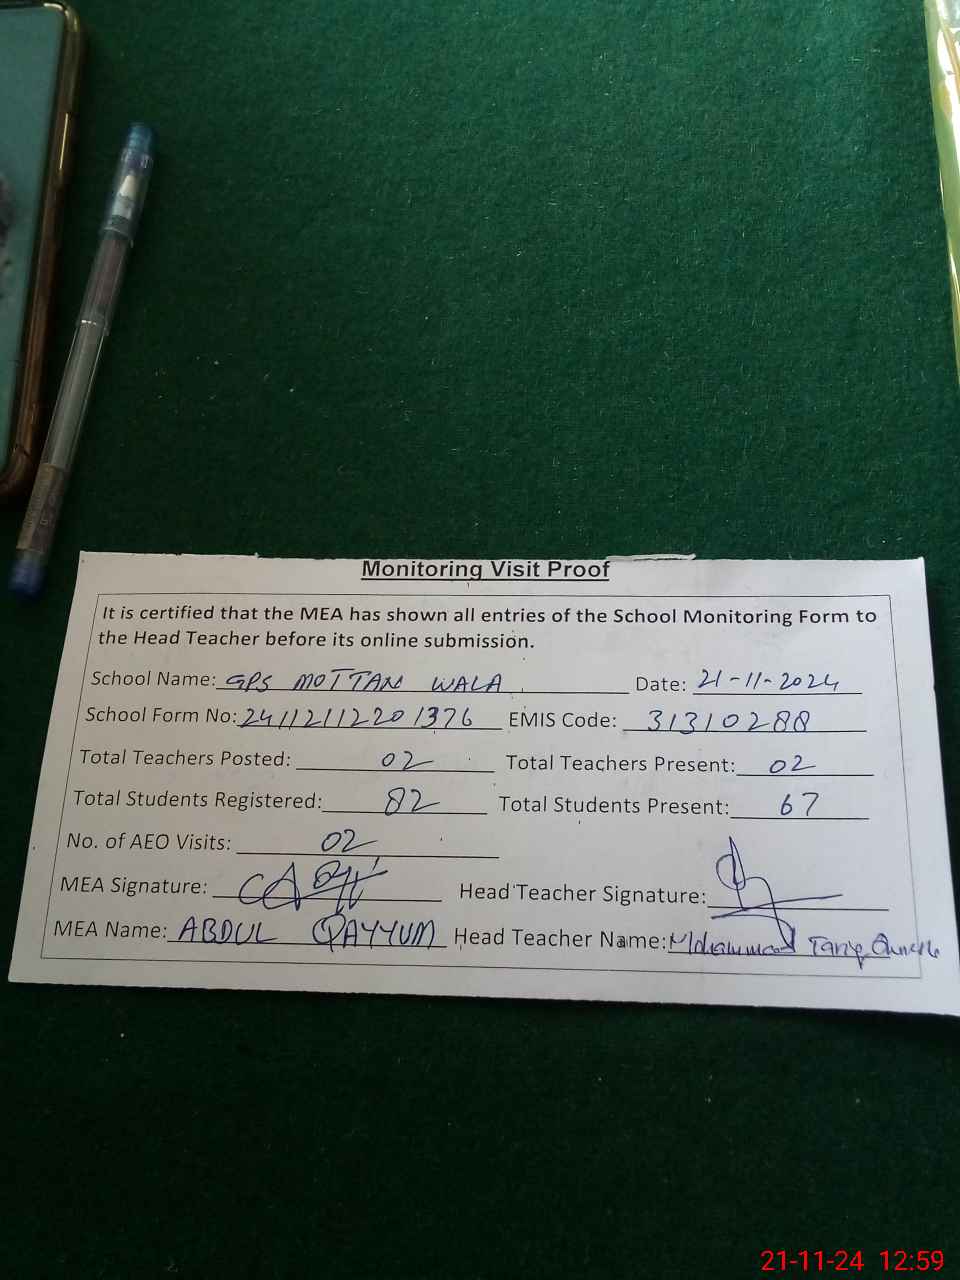 Monitoring Visit Proof
It is certified that the MEA has shown all entries of the School Monitoring Form to
the Head Teacher before its online submission.
School Name: GPS MOTTAN WALA Date: 21-11-2024
School Form No: 2411211220 1376 EMIS Code: 31310288
Total Teachers Posted: 02 Total Teachers Present: 02
Total Students Registered: 82 Total Students Present: 67
No. of AEO Visits: 02
MEA Signature: Head Teacher Signature:
MEA Name: ABDUL QAYYUM Head Teacher Name: Mohammad Tariq
21-11-24 12:59